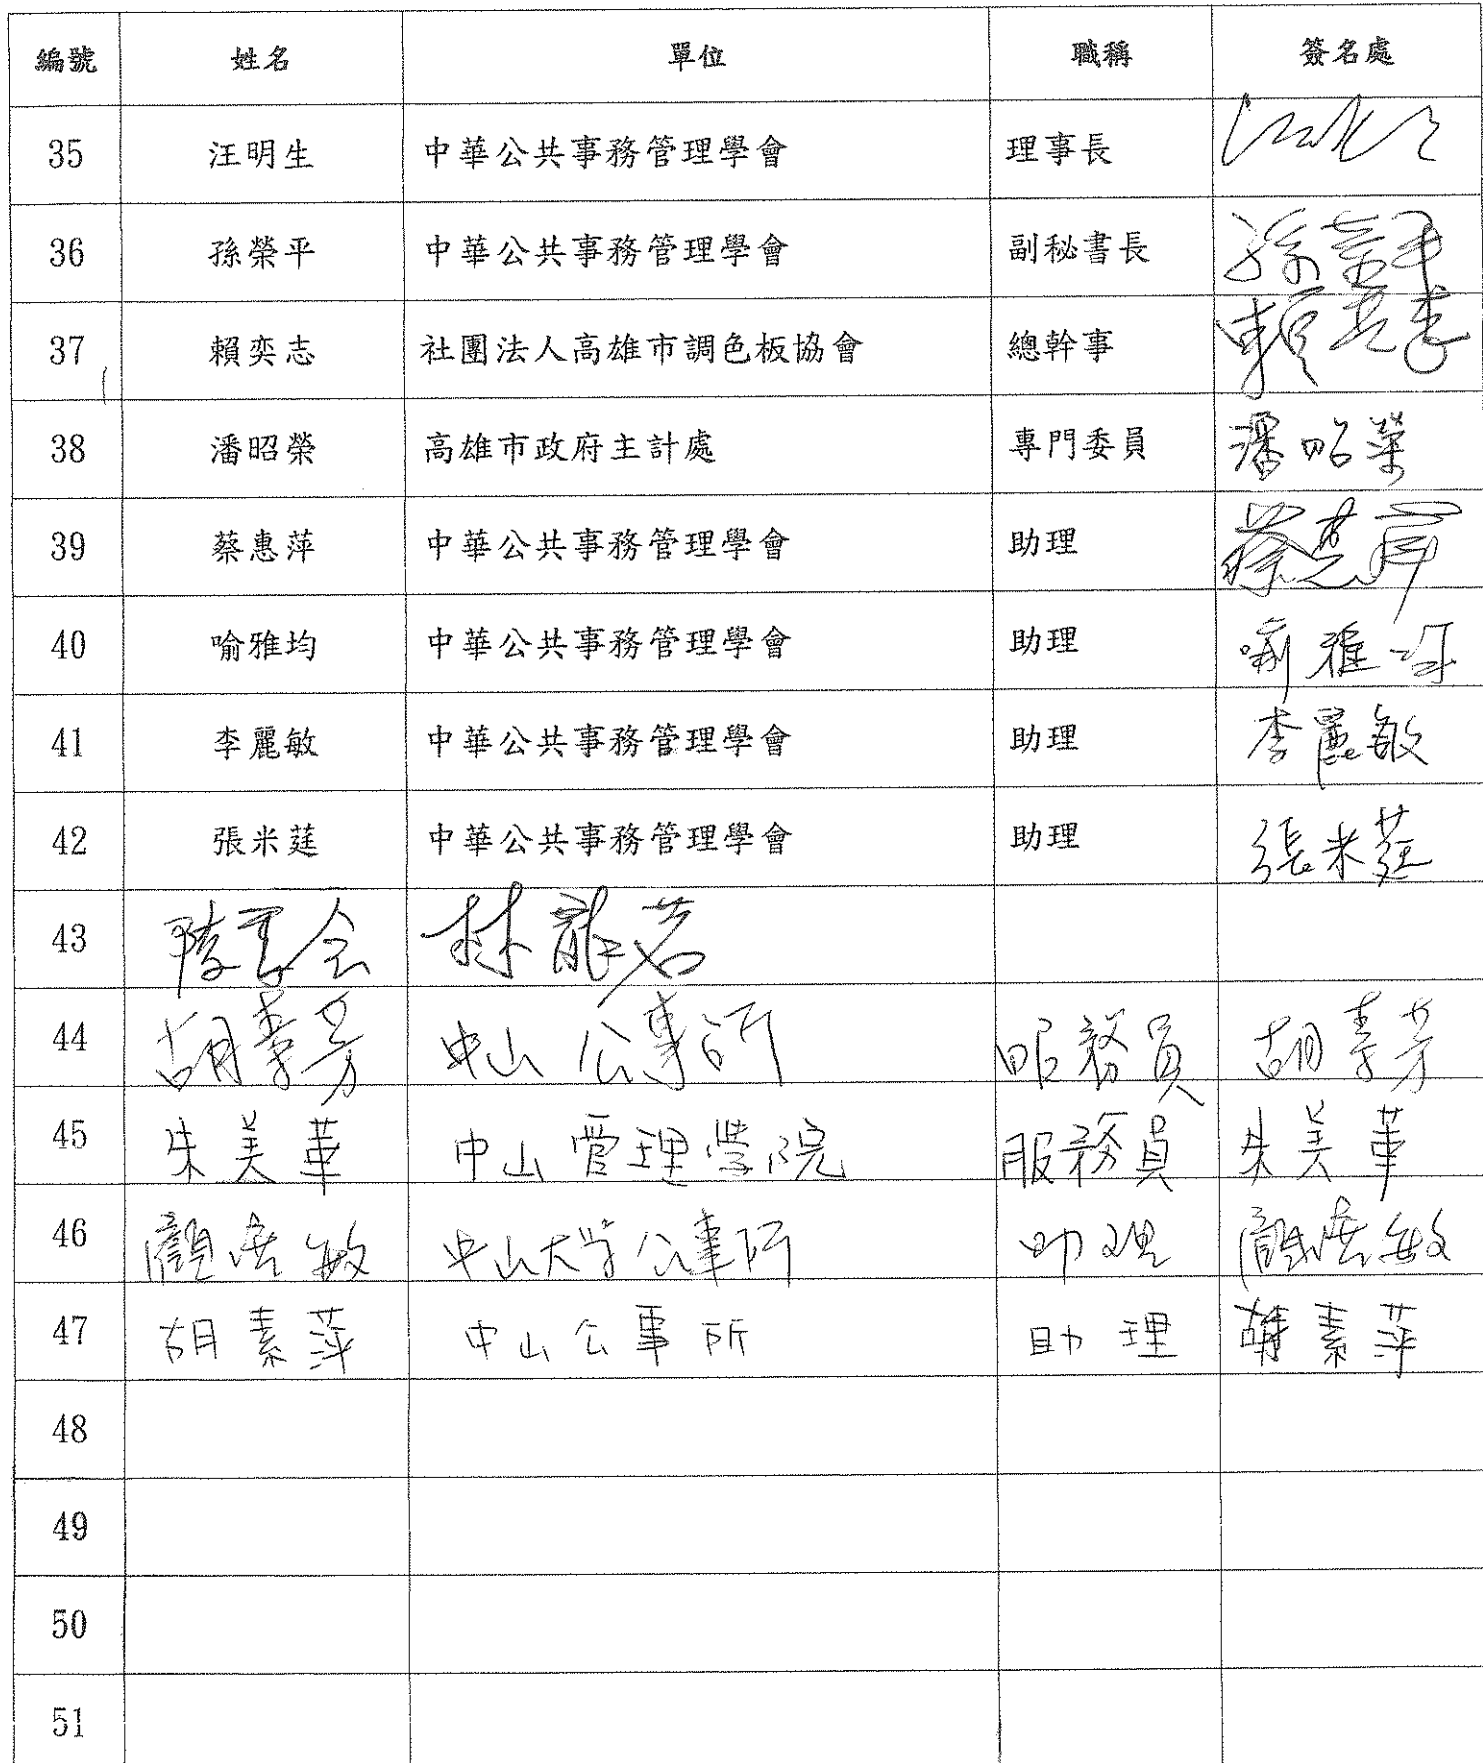 編號 姓名 單位 職稱 簽名處
35 汪明生 中華公共事務管理學會 理事長
36 孫榮平 中華公共事務管理學會 副秘書長 孫榮平
37 賴奕志 社團法人高雄市調色板協會 總幹事 賴奕志
38 潘昭榮 高雄市政府主計處 專門委員 潘昭榮
39 蔡惠萍 中華公共事務管理學會 助理 蔡惠萍
40 喻雅均 中華公共事務管理學會 助理 喻雅均
41 李麗敏 中華公共事務管理學會 助理 李麗敏
42 張米莛 中華公共事務管理學會 助理 張米莛
43 林龍若
44 胡秀芳 中山公事所 服務員 胡秀芳
45 朱美華 中山管理學院 服務員 朱美華
46 敏 中山大学公事所 助理 敏
47 胡素萍 中山公事所 助理 胡素萍
48
49
50
51